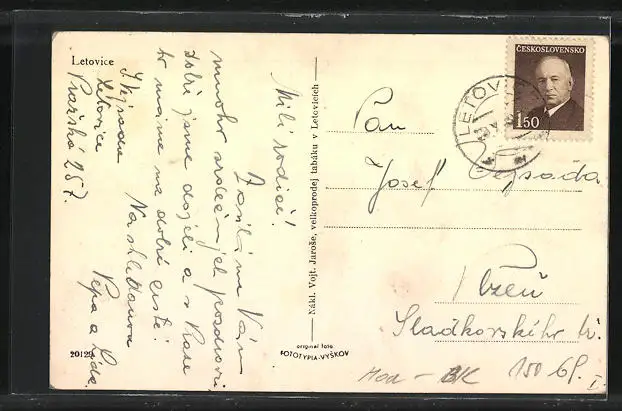 Letovice
Milí rodiče!
Zasílám Vám
mnoho srdečných pozdravů
dobře jsme dojeli a v Praze
to máme na dobré cestě!
Na shledanou
Pepa a Lída.
Letovice
Pražská 257.
20129
Nákl. Vojt. Jaroše, velkoprodej tabáku v Letovicích
original foto
FOTOTYPIA-VYŠKOV
ČESKOSLOVENSKO
1.50
LETOVICE
Pan
Josef Vejsada
Plzeň
Sladkovského